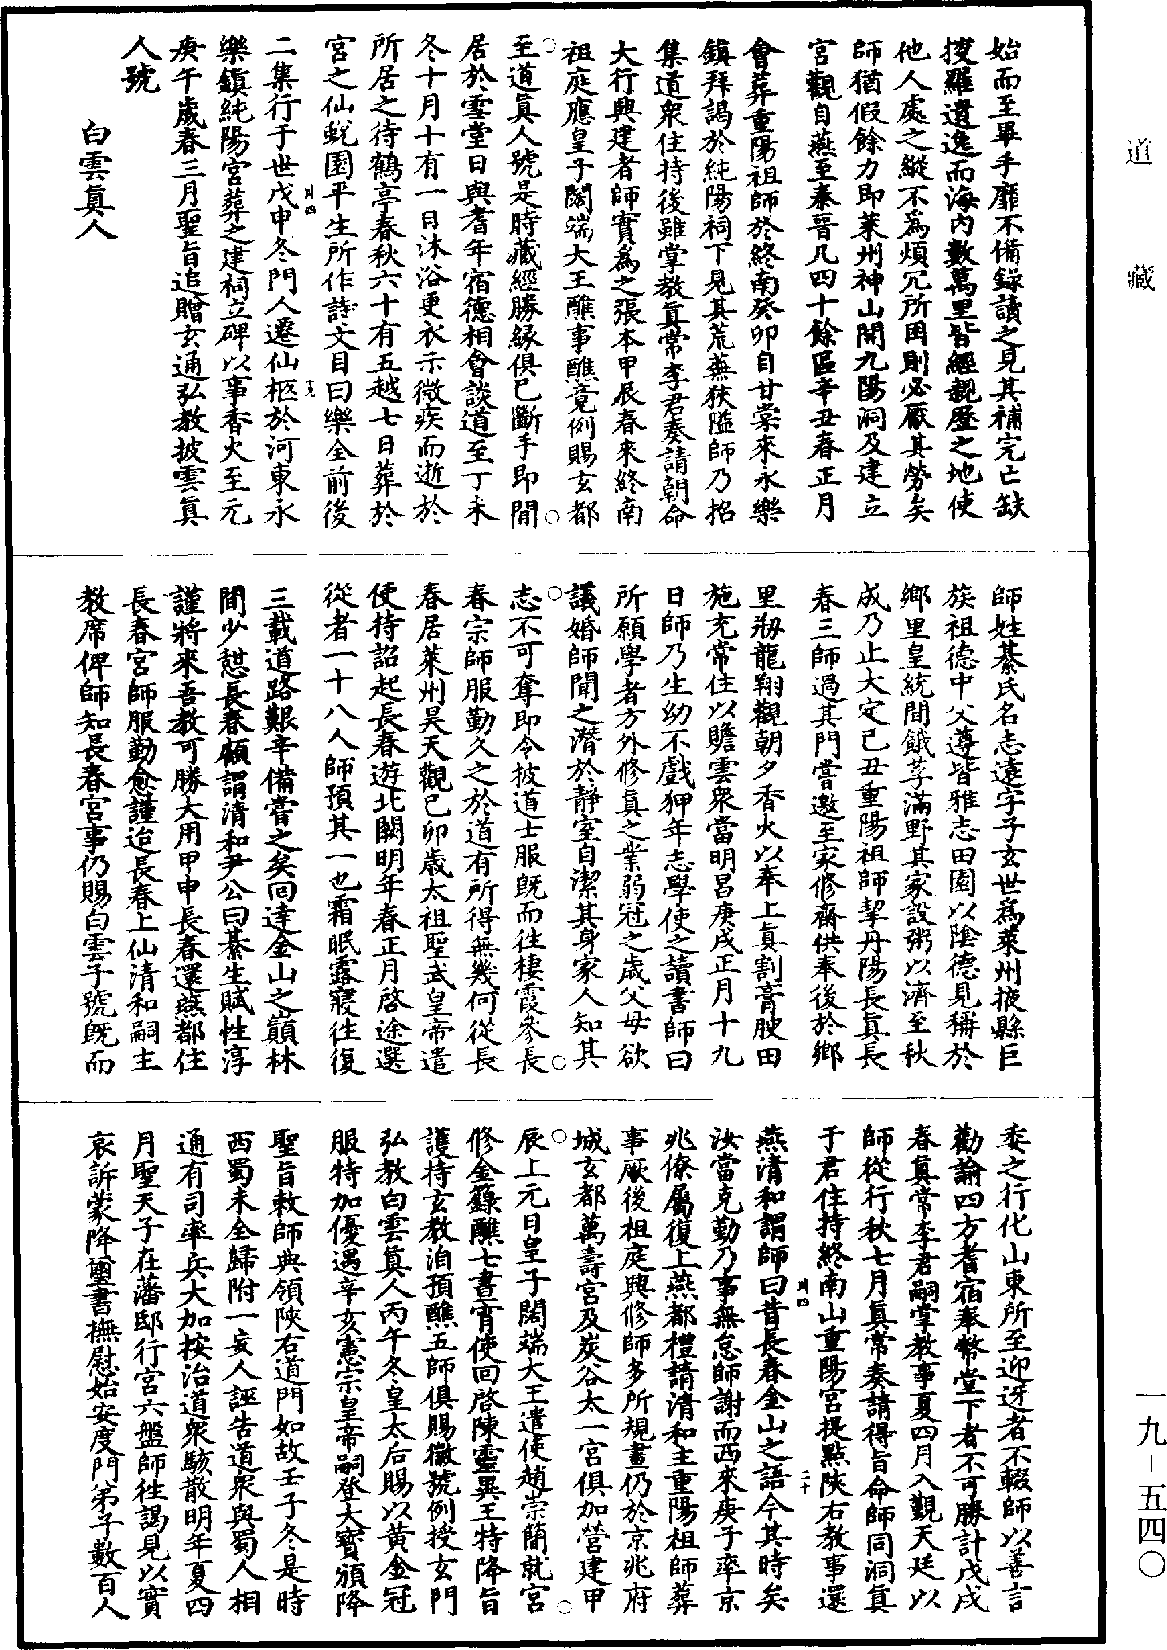 道藏
始而至畢手靡不備錄讀之見其補完亡缺
搜羅遺逸而海內數萬里皆經親歷之地使
他人處之縱不爲煩冗所困則必厭其勞矣
師猶假餘力即萊州神山開九陽洞及建立
宮觀自燕至秦晉凡四十餘區辛丑春正月
會葬重陽祖師於終南癸卯自甘棠來永樂
鎮拜謁於純陽祠下見其荒蕪狹隘師乃招
集道衆住持後雖掌教真常李君奏請朝命
大行興建者師實爲之張本甲辰春來終南
祖庭應皇子闊端大王醮事醮竟例賜玄都
至道真人號是時藏經勝緣俱已斷手即閒
居於雪堂日與耆年宿德相會談道至丁未
冬十月十有一日沐浴更衣示微疾而逝於
所居之待鶴亭春秋六十有五越七日葬於
宮之仙蛻園平生所作詩文目曰樂全前後
二集行于世戊申冬門人遷仙柩於河東永
樂鎮純陽宮葬之建祠立碑以事香火至元
庚午歲春三月聖旨追贈玄通弘教披雲真
人號
白雲真人
師姓綦氏名志遠字子玄世爲萊州掖縣巨
族祖德中父遵皆雅志田園以陰德見稱於
鄉里皇統間餓莩滿野其家設粥以濟至秋
成乃止大定己丑重陽祖師挈丹陽長真長
春三師過其門嘗邀至家修齋供奉後於鄉
里剏龍翔觀朝夕香火以奉上真割膏腴田
施充常住以贍雲衆當明昌庚戌正月十九
日師乃生幼不戲狎年志學使之讀書師曰
所願學者方外修真之業弱冠之歲父母欲
議婚師聞之潛於靜室自潔其身家人知其
志不可奪即令披道士服既而往棲霞參長
春宗師服勤久之於道有所得無幾何從長
春居萊州昊天觀己卯歲太祖聖武皇帝遣
使持詔起長春遊北闕明年春正月啓途選
從者一十八人師預其一也霜眠露寢往復
三載道路艱辛備嘗之矣回達金山之巔林
間少憇長春顧謂清和尹公曰綦生賦性淳
謹將來吾教可勝大用甲申長春還燕都住
長春宮師服勤愈謹迨長春上仙清和嗣主
教席俾師知長春宮事仍賜白雲子號既而
委之行化山東所至迎迓者不輟師以善言
勸諭四方耆宿奉幣堂下者不可勝計戊戌
春真常李君嗣掌教事夏四月入覲天廷以
師從行秋七月真常奏請得旨命師同洞真
于君住持終南山重陽宮提點陝右教事還
燕清和謂師曰昔長春金山之語今其時矣
汝當克勤乃事無怠師謝而西來庚子率京
兆僚屬復上燕都禮請清和主重陽祖師葬
事厥後祖庭興修師多所規畫仍於京兆府
城玄都萬壽宮及炭谷太一宮俱加營建甲
辰上元日皇子闊端大王遣使趙崇簡就宮
修金籙醮七晝宵使回啓陳靈異王特降旨
護持玄教洎預醮五師俱賜徽號例授玄門
弘教白雲真人丙午冬皇太后賜以黃金冠
服特加優遇辛亥憲宗皇帝嗣登大寶頒降
聖旨敕師典領陝右道門如故壬子冬是時
西蜀未全歸附一妄人誣告道衆與蜀人相
通有司率兵大加按治道衆駭散明年夏四
月聖天子在藩邸行宮六盤師往謁見以實
哀訴蒙降璽書撫慰始安度門弟子數百人
一九－五四〇